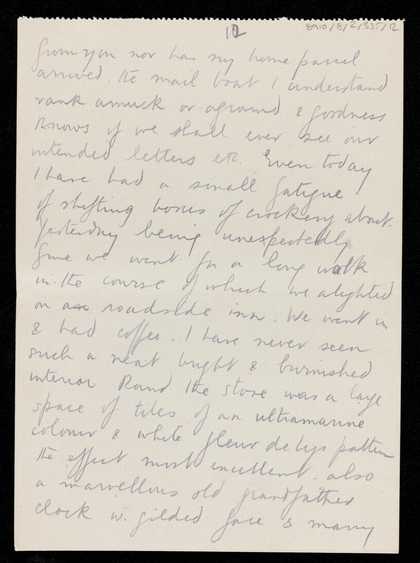 12
8910/8/2/335/12
from you nor has my home parcel
arrived. the mail boat I understand
rank amuck or aground & goodness
knows if we shall ever see our
intended letters etc. Even today
I have had a small fatigue
of shifting boxes of crockery about.
Yesterday being unexpectedly
fine we went for a long walk
in the course of which we alighted
on a roadside inn. We went in
& had coffee. I have never seen
such a neat bright & burnished
interior Round the stove was a large
space of tiles of an ultramarine
colour & white fleur de lys pattern
the effect most excellent. also
a marvellous old grandfather
clock w. gilded face & many